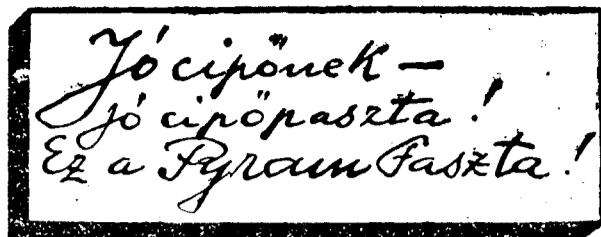 Jó cipőnek —
jó cipőpaszta!
Ez a Pyram Paszta!